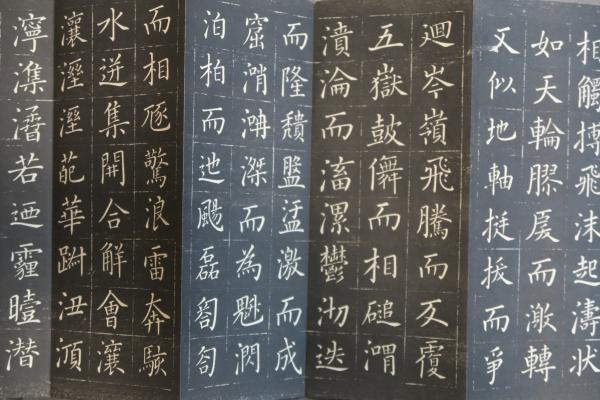 相觸搏飛沫起濤狀
如天輪膠戾而激轉
又似地軸挺拔而爭
迴岑嶺飛騰而反覆
五嶽鼓儛而相磓渭
濆淪而滀漯鬱沏迭
而隆穨盤盓激而成
窟消滐而為魁㴸
泊柏而迆颺磊匒匌
而相豗驚浪雷奔駭
水迸集開合解會瀼
瀼溼溼葩華踧沑澒
濘潗㵫若迺霾曀潛